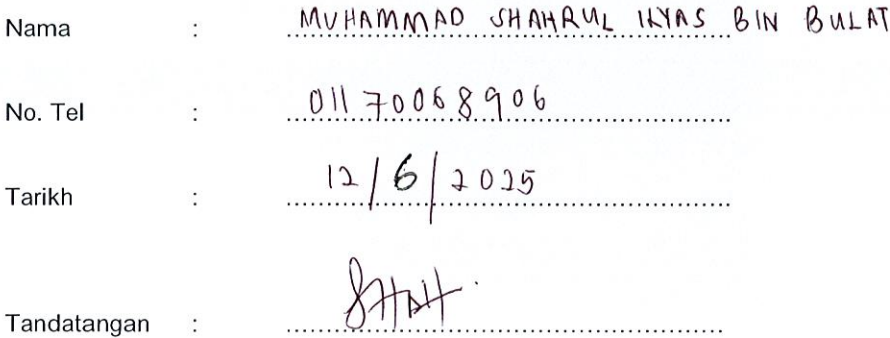 Nama : MUHAMMAD SHAHRUL ILYAS BIN BULAT
No. Tel : 01170068906
Tarikh : 12/6/2025
Tandatangan :